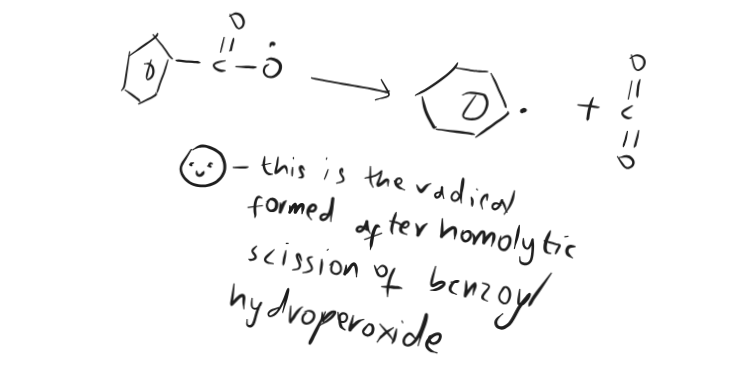 O
|| •
C – O → • + O
||
C
||
O
– this is the radical
formed after homolytic
scission of benzoyl
hydroperoxide